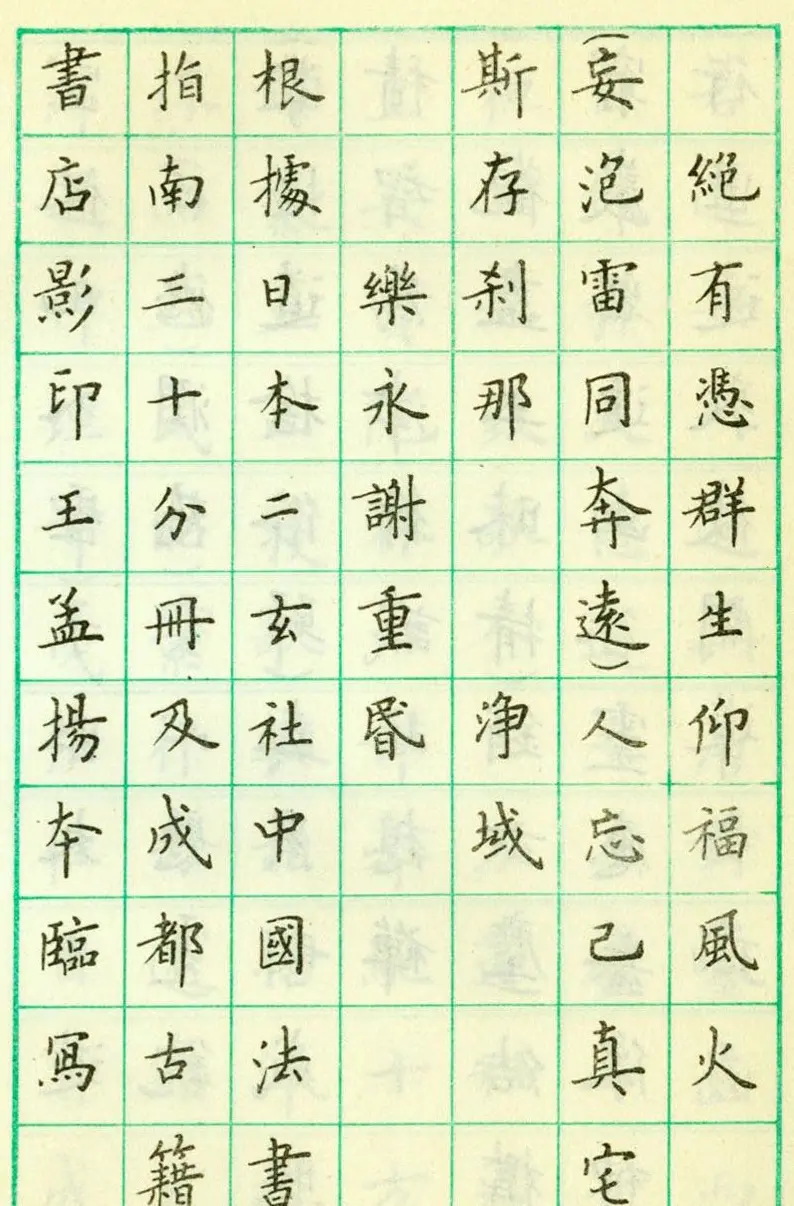 絕有憑群生仰福風火
(妄泡雷同奔遠)人忘己真宅
斯存刹那 淨域
樂永謝重昏
根據日本二玄社中國法書
指南三十分冊及成都古籍
書店影印王孟揚本臨寫